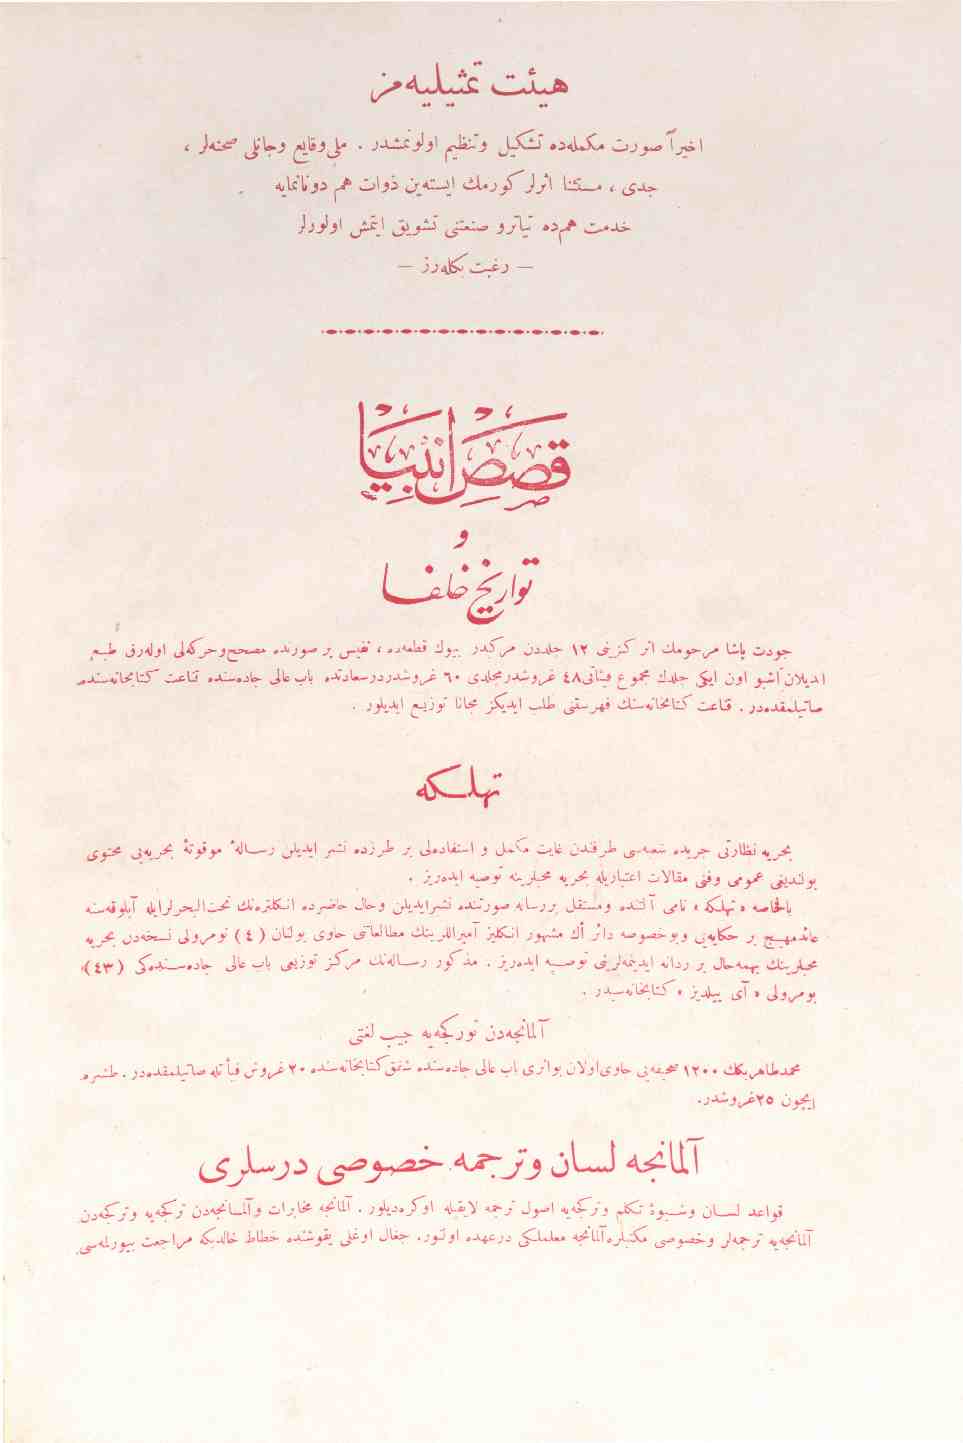 هيئت تمثيليه‌مز
اخيراً صورت مكمله‌ده تشكيل وتنظيم اولونمشدر . ملی وقايع وجانلی صحنه‌لر ،
جدی ، مستثنا اثرلر كورمك ايسته‌ين ذوات هم دونانمايه
خدمت هم‌ده تياترو صنعتنی تشويق ايتمش اولورلر
— رغبت بكله‌رز —
قصص انبيا
و
تواريخ خلفا
جودت پاشا مرحومك اثر كزينی ١٢ جلددن مركبدر بيوك قطعه‌ده ، نفيس بر صورتده مصحح وحركه‌لی اوله‌رق طبع
ايديلان اشبو اون ايكی جلدك مجموع فيئاتی ٤٨ غروشدر مجلدی ٦٠ غروشدر درسعادتده باب عالی جاده‌سنده قناعت كتابخانه‌سنده
صاتيلمقده‌در . قناعت كتابخانه‌سنك فهرستنی طلب ايديكز مجانا توزيع ايديلور .
تهلكه
بحريه نظارتی جريده شعبه‌سی طرفندن غايت مكمل و استفاده‌لی بر طرزده نشر ايديلن رسالهٔ موقوتهٔ بحريه‌يی محتوی
بولنديغی عمومی وفنی مقالات اعتباريله بحريه محبلرينه توصيه ايده‌ريز .
بالخاصه « تهلكه » نامی آلتنده ومستقل بر رساله صورتنده نشرايديلن وحال حاضرده انكلتره‌نك تحت‌البحرلرايله آبلوقه‌سنه
عائدمهيج بر حكايه‌يی وبوخصوصه دائر اك مشهور انكليز آميراللرينك مطالعاتنی حاوی بولنان ( ٤ ) نومرولی نسخه‌دن بحريه
محبلرينك بهمه‌حال بر ردانه ايدينمه‌لرينی توصيه ايده‌ريز . مذكور رساله‌نك مركز توزيعی باب عالی جاده‌سنده‌كی ( ٤٣ )
نومرولی « آی ييلديز » كتابخانه‌سيدر .
آلمانجه‌دن توركجه‌يه جيب لغتی
محمدطاهربكك ١٢٠٠ صحيفه‌يی حاوی اولان بواثری باب عالی جاده‌سنده شفق كتابخانه‌سنده ٢٠ غروش فيأتله صاتيلمقده‌در . طشره
ايچون ٢٥ غروشدر.
آلمانجه لسان وترجمه خصوصی درسلری
قواعد لسان وشيوهٔ تكلم وتركجه‌يه اصول ترجمه لايقيله اوكره‌ديلور . آلمانجه مخابرات وآلمانجه‌دن تركجه‌يه وتركجه‌دن
آلمانجه‌يه ترجمه‌لر وخصوصی مكتبلره آلمانجه معلملكی درعهده اولنور. جغال اوغلی يقوشنده خطاط خالدبكه مراجعت بيورلمه‌سی